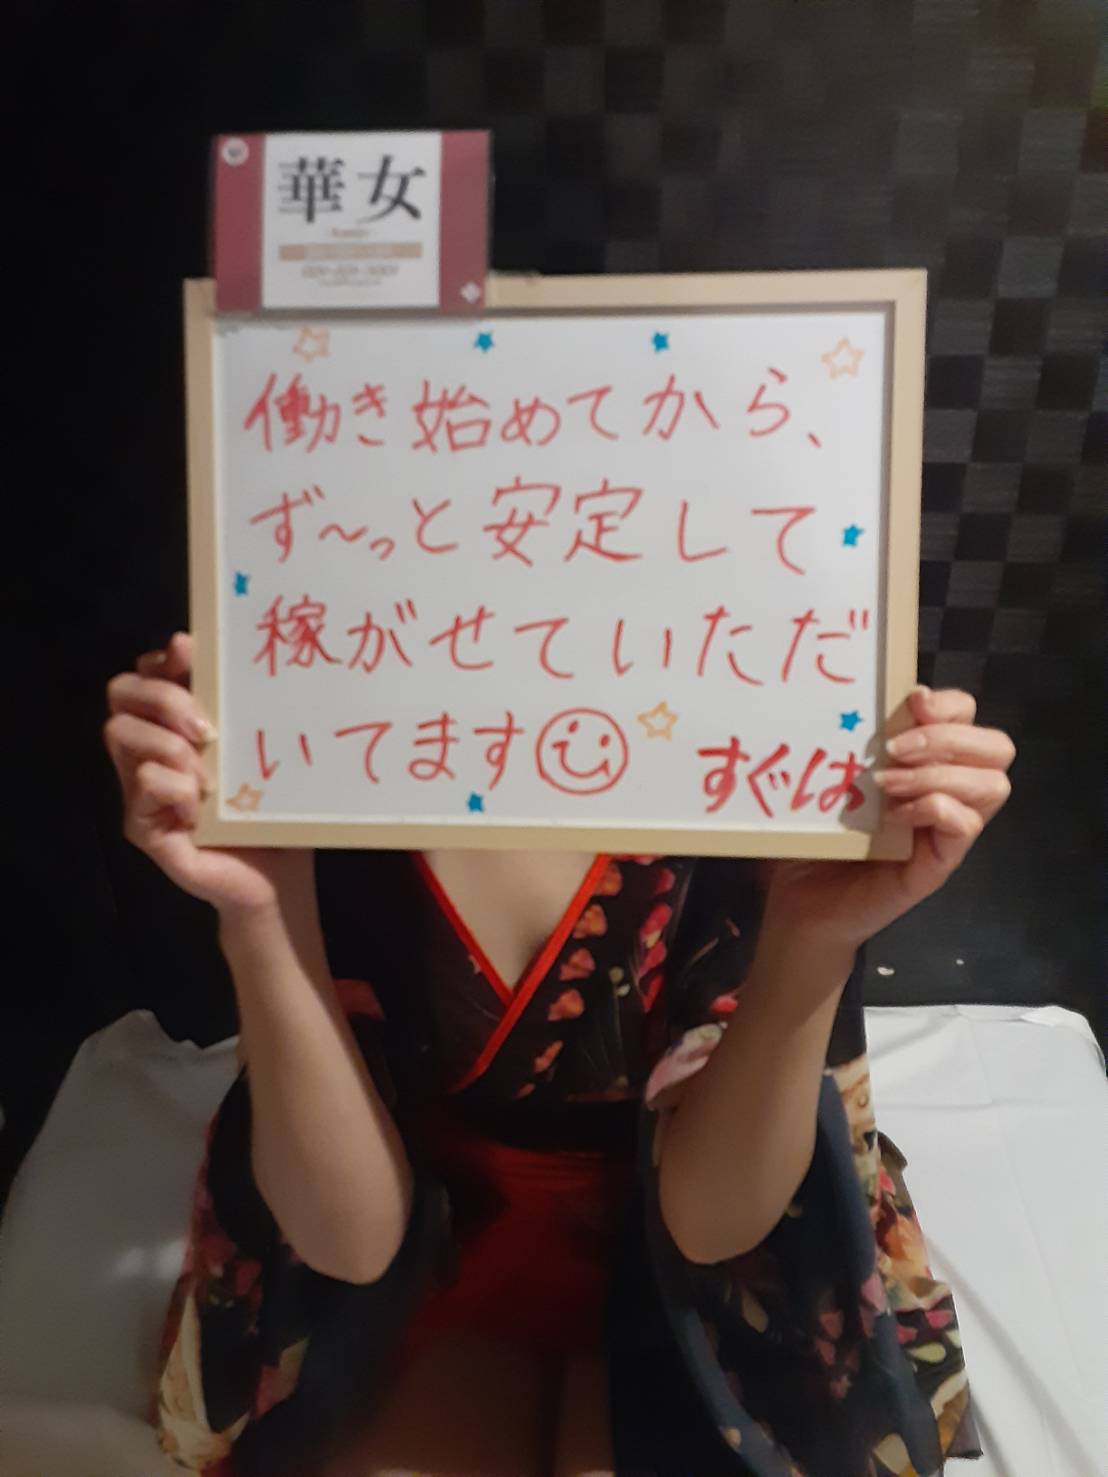 華女
働き始めてから、
ず〜っと安定して
稼がせていただ
いてます
すぐは